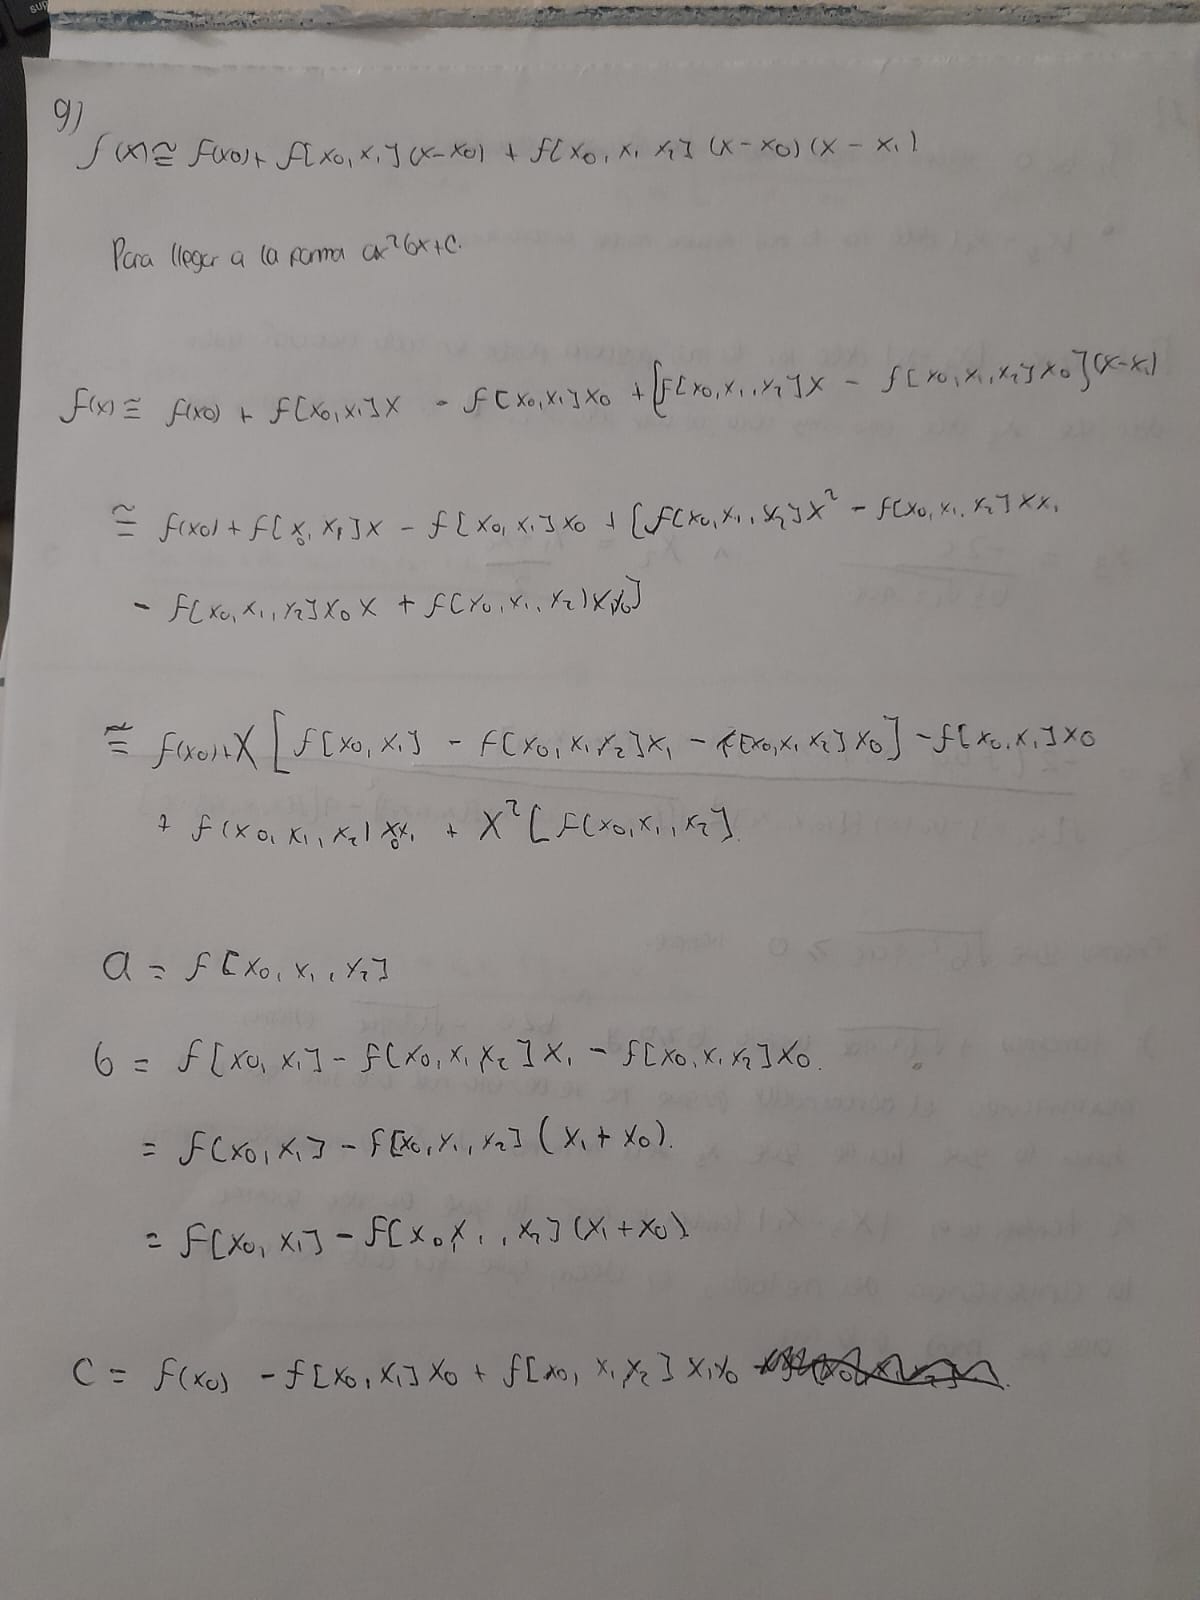 g)
f(x) ≅ f(x0) + f[x0, x1](x-x0) + f[x0, x1 x2] (x-x0)(x-x1)
Para llegar a la forma ax²bx+c.
f(x) ≅ f(x0) + f[x0, x1]x - f[x0, x1]x0 + [f[x0, x1, x2]x - f[x0, x1, x2]x0](x-x1)
≅ f(x0) + f[x0, x1]x - f[x0, x1]x0 + [f[x0, x1, x2]x² - f[x0, x1, x2]xx1
- f[x0, x1, x2]x0x + f(x0, x1, x2)x1x0]
≅ f(x0)+x [f[x0, x1] - f[x0, x1, x2]x1 - f[x0, x1 x2]x0] - f[x0, x1]x0
+ f(x0, x1, x2) x0x1 + x² [f[x0, x1, x2].
a = f[x0, x1, x2]
b = f[x0, x1] - f[x0, x1 x2]x1 - f[x0, x1 x2]x0.
= f[x0, x1] - f[x0, x1, x2] (x1 + x0).
= f[x0, x1] - f[x0 x1, x2] (x1 + x0)
C = f(x0) - f[x0, x1]x0 + f[x0, x1 x2] x1x0
sup